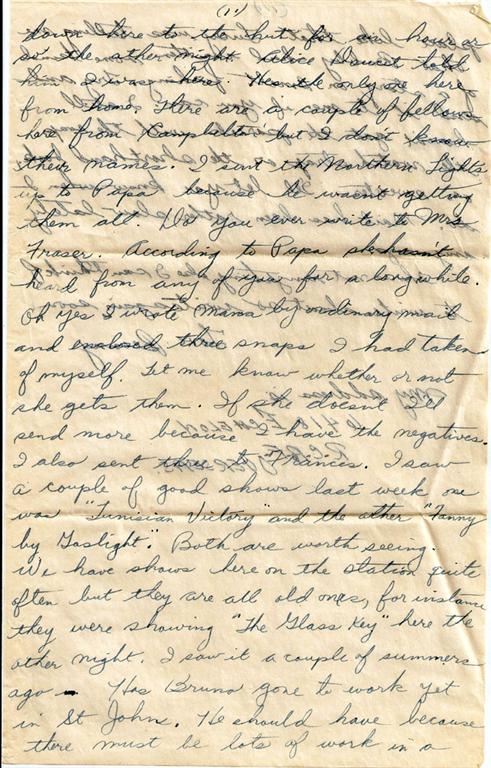 (1)
down here to the hut for an hour or
so the other night. Alice Doucet told
him I was here. Hes the only one here
from home. There are a couple of fellows
here from Campbellton but I don't know
their names. I sent the Northern Lights
up to Papa because he wasnt getting
them all. Do you ever write to Mrs
Fraser. According to Papa she hasn't
heard from any of you for a long while.
Oh yes I wrote Mama by ordinary mail
and enclosed three snaps I had taken
of myself. Let me know whether or not
she gets them. If she doesn't I'll
send more because I have the negatives.
I also sent three to Frances. I saw
a couple of good shows last week one
was "Tunisian Victory" and the other "Fanny
by Gaslight". Both are worth seeing.
We have shows here on the station quite
often but they are all old ones, for instance
they were showing "The Glass Key" here the
other night. I saw it a couple of summers
ago — Has Bruno gone to work yet
in St Johns. He should have because
there must be lots of work in a